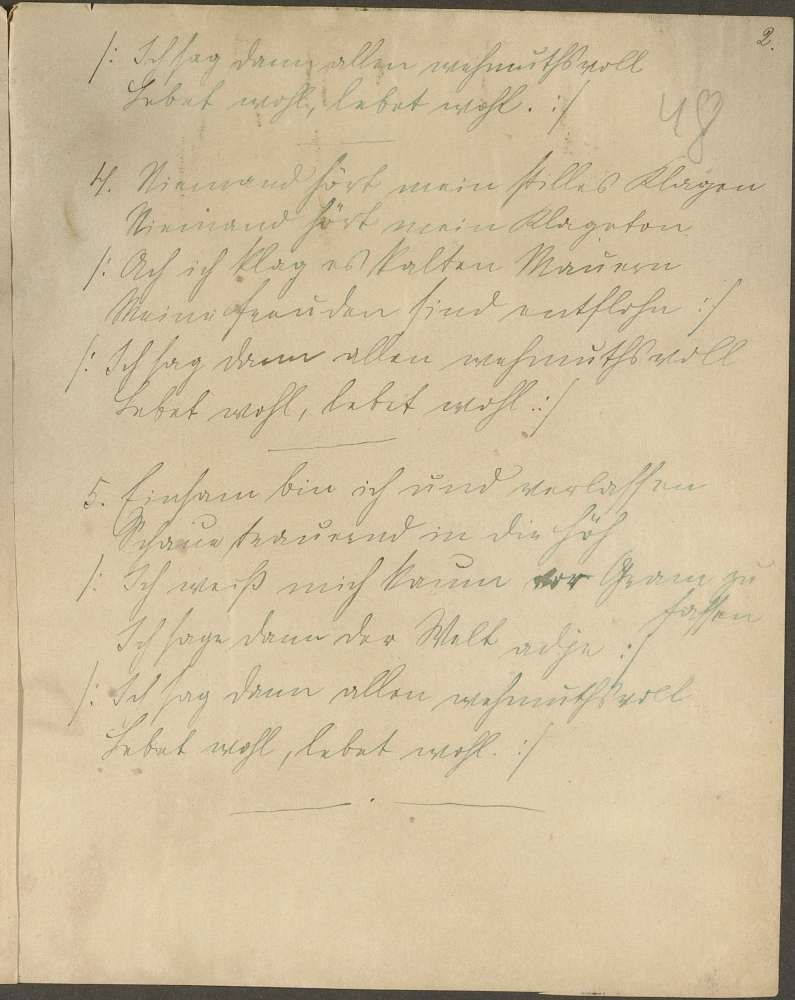 2.
/: Ich sag dann allen wehmuthsvoll
Lebet wohl, lebet wohl. :/
48
4. Niemand hört mein stilles Klagen
Niemand hört mein Klageton
/: Ach ich klag es kalten Mauern
Meine Freuden sind entflohn :/
/: Ich sag dann allen wehmuthsvoll
Lebet wohl, lebet wohl :/
5. Einsam bin ich und verlassen
Schaue trauernd in die Höh
/: Ich weiß mich kaum vor Gram zu
fassen
Ich sage dann der Welt adje :/
/: Ich sag dann allen wehmuthsvoll
Lebet wohl, lebet wohl. :/